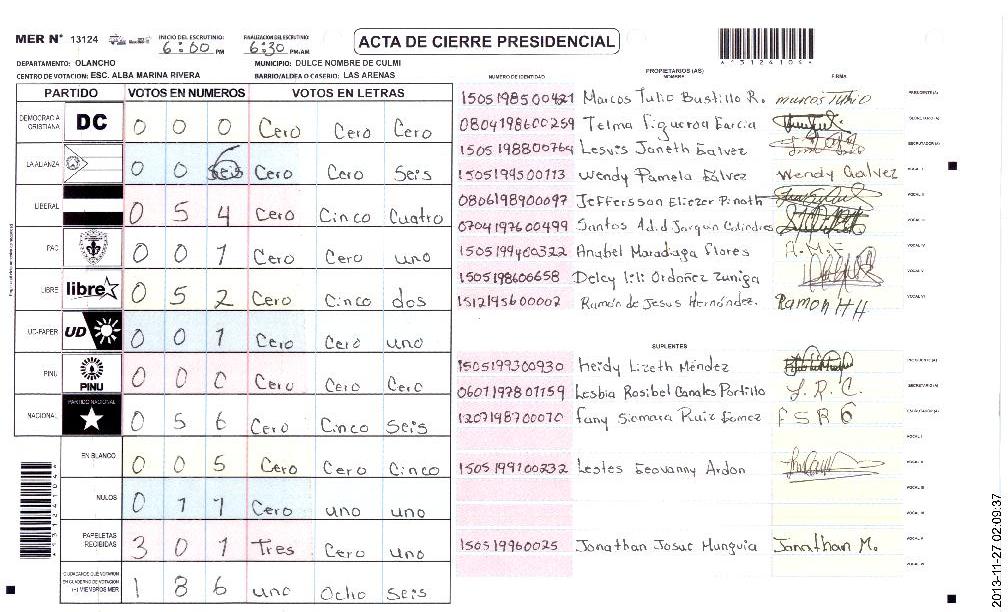 MER Nº 13124
INICIO DEL ESCRUTINIO: 6:00 PM
FINALIZACION DEL ESCRUTINIO: 6:30 PM/AM
ACTA DE CIERRE PRESIDENCIAL
DEPARTAMENTO: OLANCHO
MUNICIPIO: DULCE NOMBRE DE CULMI
CENTRO DE VOTACION: ESC. ALBA MARINA RIVERA
BARRIO/ALDEA O CASERIO: LAS ARENAS
PARTIDO VOTOS EN NUMEROS VOTOS EN LETRAS
DEMOCRACIA CRISTIANA DC 0 0 0 Cero Cero Cero
LA ALIANZA 0 0 6 Seis Cero Cero Seis
LIBERAL 0 5 4 Cero Cinco Cuatro
PAC 0 0 1 Cero Cero uno
LIBRE libre 0 5 2 Cero Cinco dos
UD-FAPER UD 0 0 1 Cero Cero uno
PINU PINU 0 0 0 Cero Cero Cero
NACIONAL PARTIDO NACIONAL 0 5 6 Cero Cinco Seis
EN BLANCO 0 0 5 Cero Cero Cinco
NULOS 0 1 1 Cero uno uno
PAPELETAS RECIBIDAS 3 0 1 Tres Cero uno
CIUDADANOS QUE VOTARON EN CUADERNO DE VOTACION (+) MIEMBROS MER 1 8 6 uno Ocho Seis
PROPIETARIOS (AS)
NUMERO DE IDENTIDAD NOMBRE FIRMA
1505198500421 Marcos Tulio Bustillo R. marcos Tulio PRESIDENTE(A)
0804198600259 Telma Figueroa Garcia SECRETARIO(A)
1505198800764 Lesvis Janeth Galvez ESCRUTADOR(A)
1505199500113 Wendy Pamela Galvez Wendy Galvez VOCAL I
0806198900097 Jeffersson Eliezer VOCAL II
0704197600499 Santos VOCAL III
1505199400322 Anabel Maradiaga Flores A.M.F VOCAL IV
1505198600658 Delcy lili Ordoñez Zuniga VOCAL V
1512195600002 Ramón de Jesus Hernández. Ramon H H VOCAL VI
SUPLENTES
1505199300930 Heidy Lizeth Méndez PRESIDENTE(A)
0601197801159 Lesbia Rosibel Canales Portillo L.R.C. SECRETARIO(A)
1207198700070 Fany Siomara Ruiz Gomez F S R G ESCRUTADOR(A)
VOCAL I
1505199100232 Lestes Geovanny Ardon VOCAL II
VOCAL III
VOCAL IV
150519960025 Jonathan Josue Munguia Jonathan M. VOCAL V
VOCAL VI
2013-11-27 02:09:37